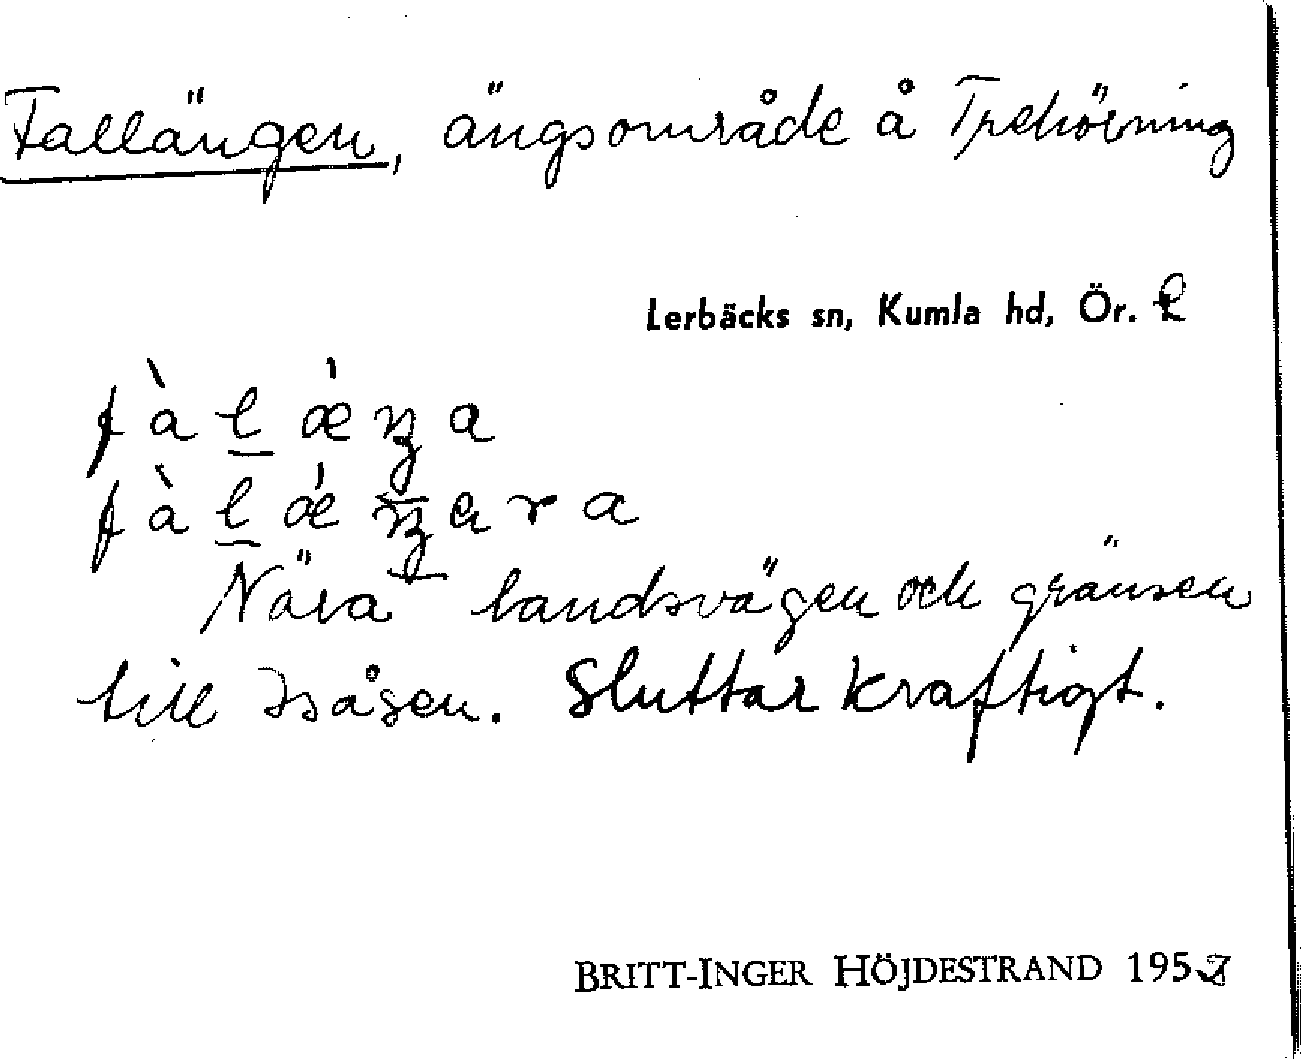 Fallängen, ängsområde å Trehörning
Lerbäcks sn, Kumla hd, Ör. L
fàlǽŋa
fàlǽŋara
Nära landsvägen och gränsen
till Isåsen. Sluttar kraftigt.
BRITT-INGER HÖJDESTRAND 1957